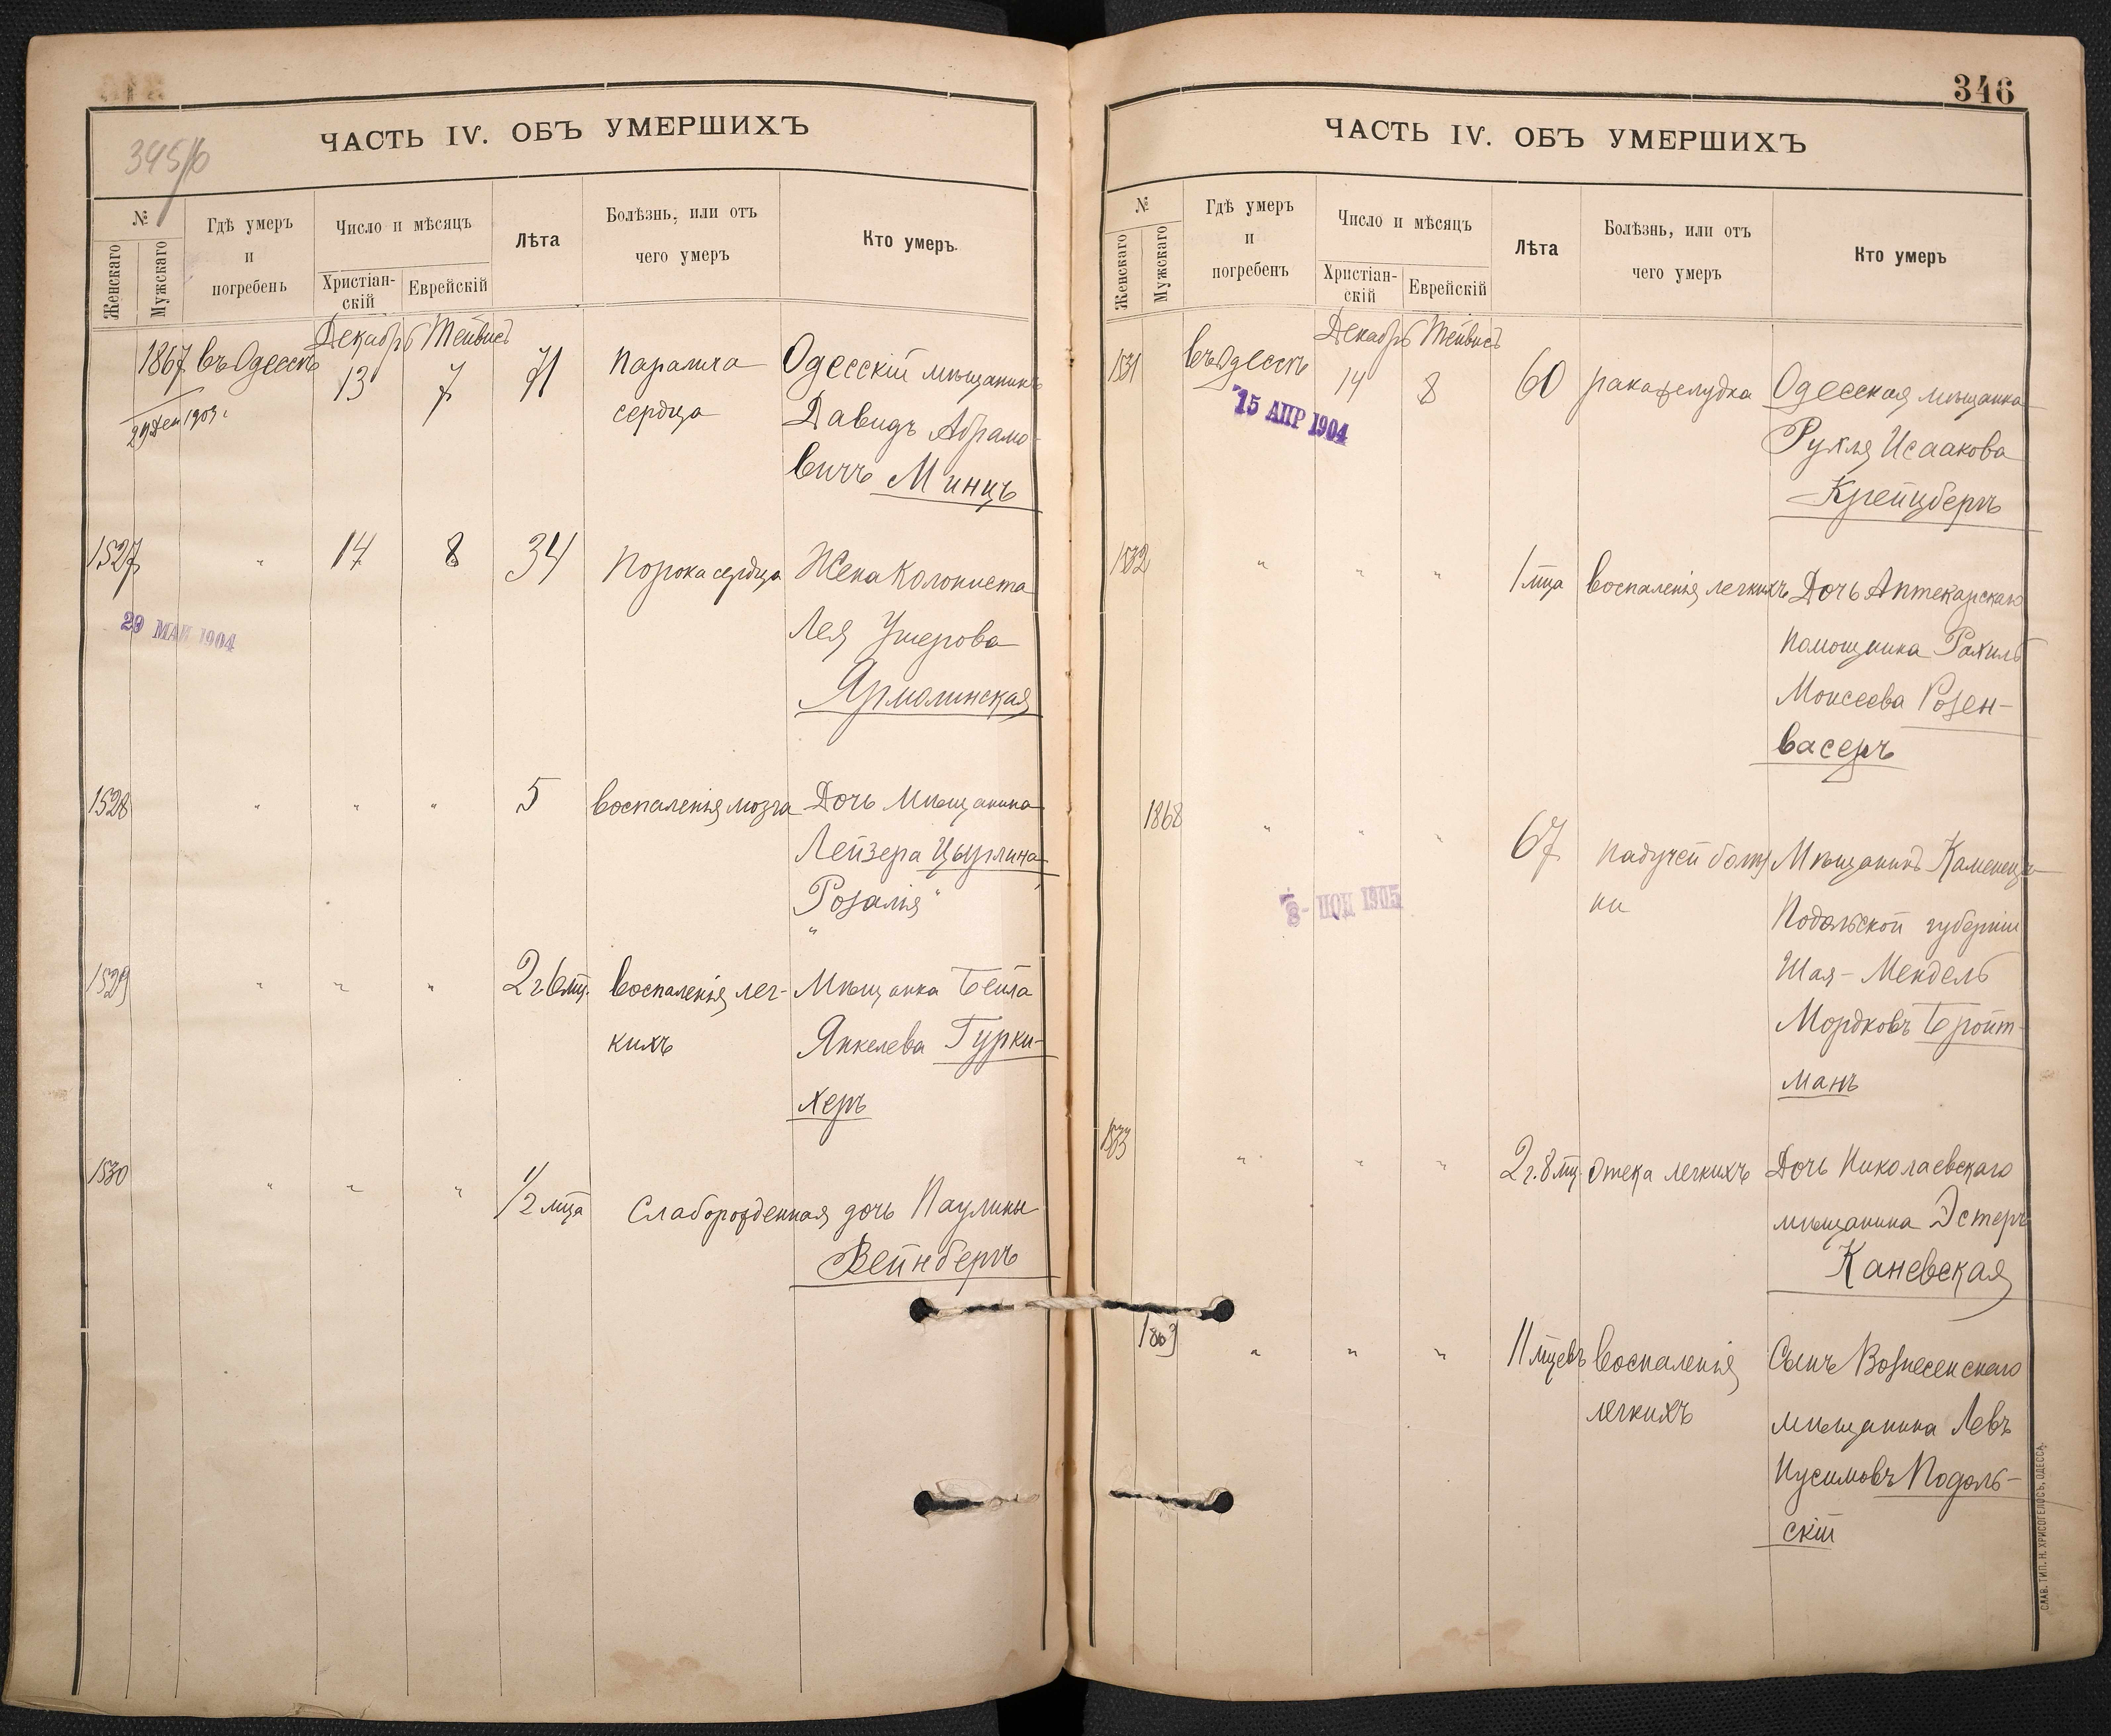 345/6
ЧАСТЬ IV. ОБЪ УМЕРШИХЪ
№
Женскаго
Мужскаго
Гдѣ умеръ
и
погребенъ
Число и мѣсяцъ
Христіан-
скій
Еврейскій
Лѣта
Болѣзнь, или отъ
чего умеръ
Кто умеръ.
Декабрь Тейвисъ
1867 въ Одессѣ 13 7 71 Паралича Одесскій мѣщанинъ
сердца Давидъ Абрамо-
вичъ Минцъ
29 Дек 1903 г
1527 " 14 8 34 Порока сердца Жена Колониста
Лея Ушерова
Ярмолинская
29 МАЙ 1904
1528 " " " 5 воспаленія мозга Дочь Мѣщанина
Лейзера Цырлина
Розалія "
"
1529 " " " 2 г. 6 мц. воспаленія лег- Мѣщанка Бейла
кихъ Янкелева Гурки-
херъ
1530 " " " 1/2 мца Слаборожденная дочь Паулины
Вейнбергъ
346
ЧАСТЬ IV. ОБЪ УМЕРШИХЪ
№
Женскаго
Мужскаго
Гдѣ умеръ
и
погребенъ
Число и мѣсяцъ
Христіан-
скій
Еврейскій
Лѣта
Болѣзнь, или отъ
чего умеръ
Кто умеръ
Декабрь Тейвисъ
1531 въ Одессѣ 14 8 60 рака желудка Одесская мѣщанка
Рухля Исаакова
Крейцбергъ
15 АПР 1904
1532 " " " 1 мца воспаленія легкихъ Дочь Аптекарскаго
помощника Рахиль
Моисеева Розен-
васеръ
1868 " " " 67 падучей болѣз Мѣщанинъ Каменеца
ни Подольской губерніи
Шая-Мендель
Мордковъ Бройт-
манъ
1905
1533 " " " 2 г. 8 мц. Отека легкихъ Дочь Николаевскаго
мѣщанина Эстеръ
Каневская
1869 " " " 11 мцевъ воспаленія Сынъ Вознесенскаго
легкихъ мѣщанина Левъ
Нусимовъ Подоль-
скій
СЛАВ. ТИП. Н. ХРИСОГЕЛОСЪ, ОДЕССА.